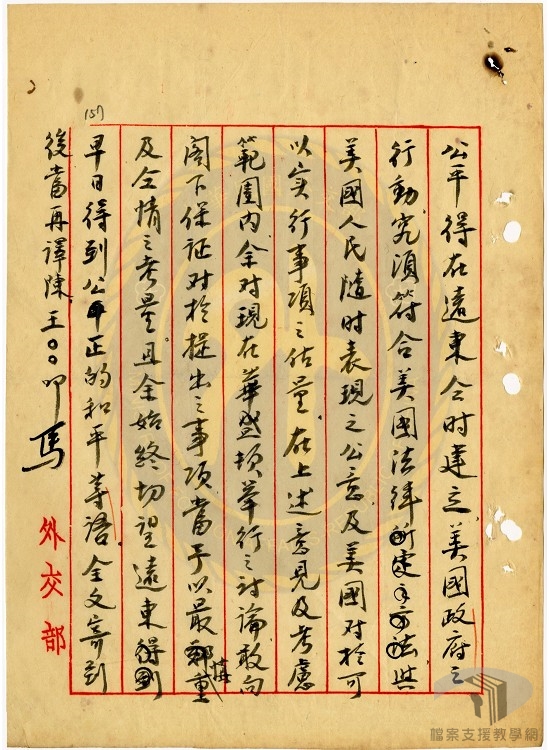 157
公平得在遠東仝时建立美國政府之
行動究須符合美國法律所定之方法與
美國人民隨时表現之公意及美國对於可
以实行事項之估量在上述意見及考慮
範圍内余对現在華盛頓举行之討論敢向
阁下保证对於提出之事項當予以最重
及仝情之考量且余始終切望遠東
早日得到公平正的和平等語全文寄到
後當再譯陳王○○叩馬
外交部
檔案支援教學網